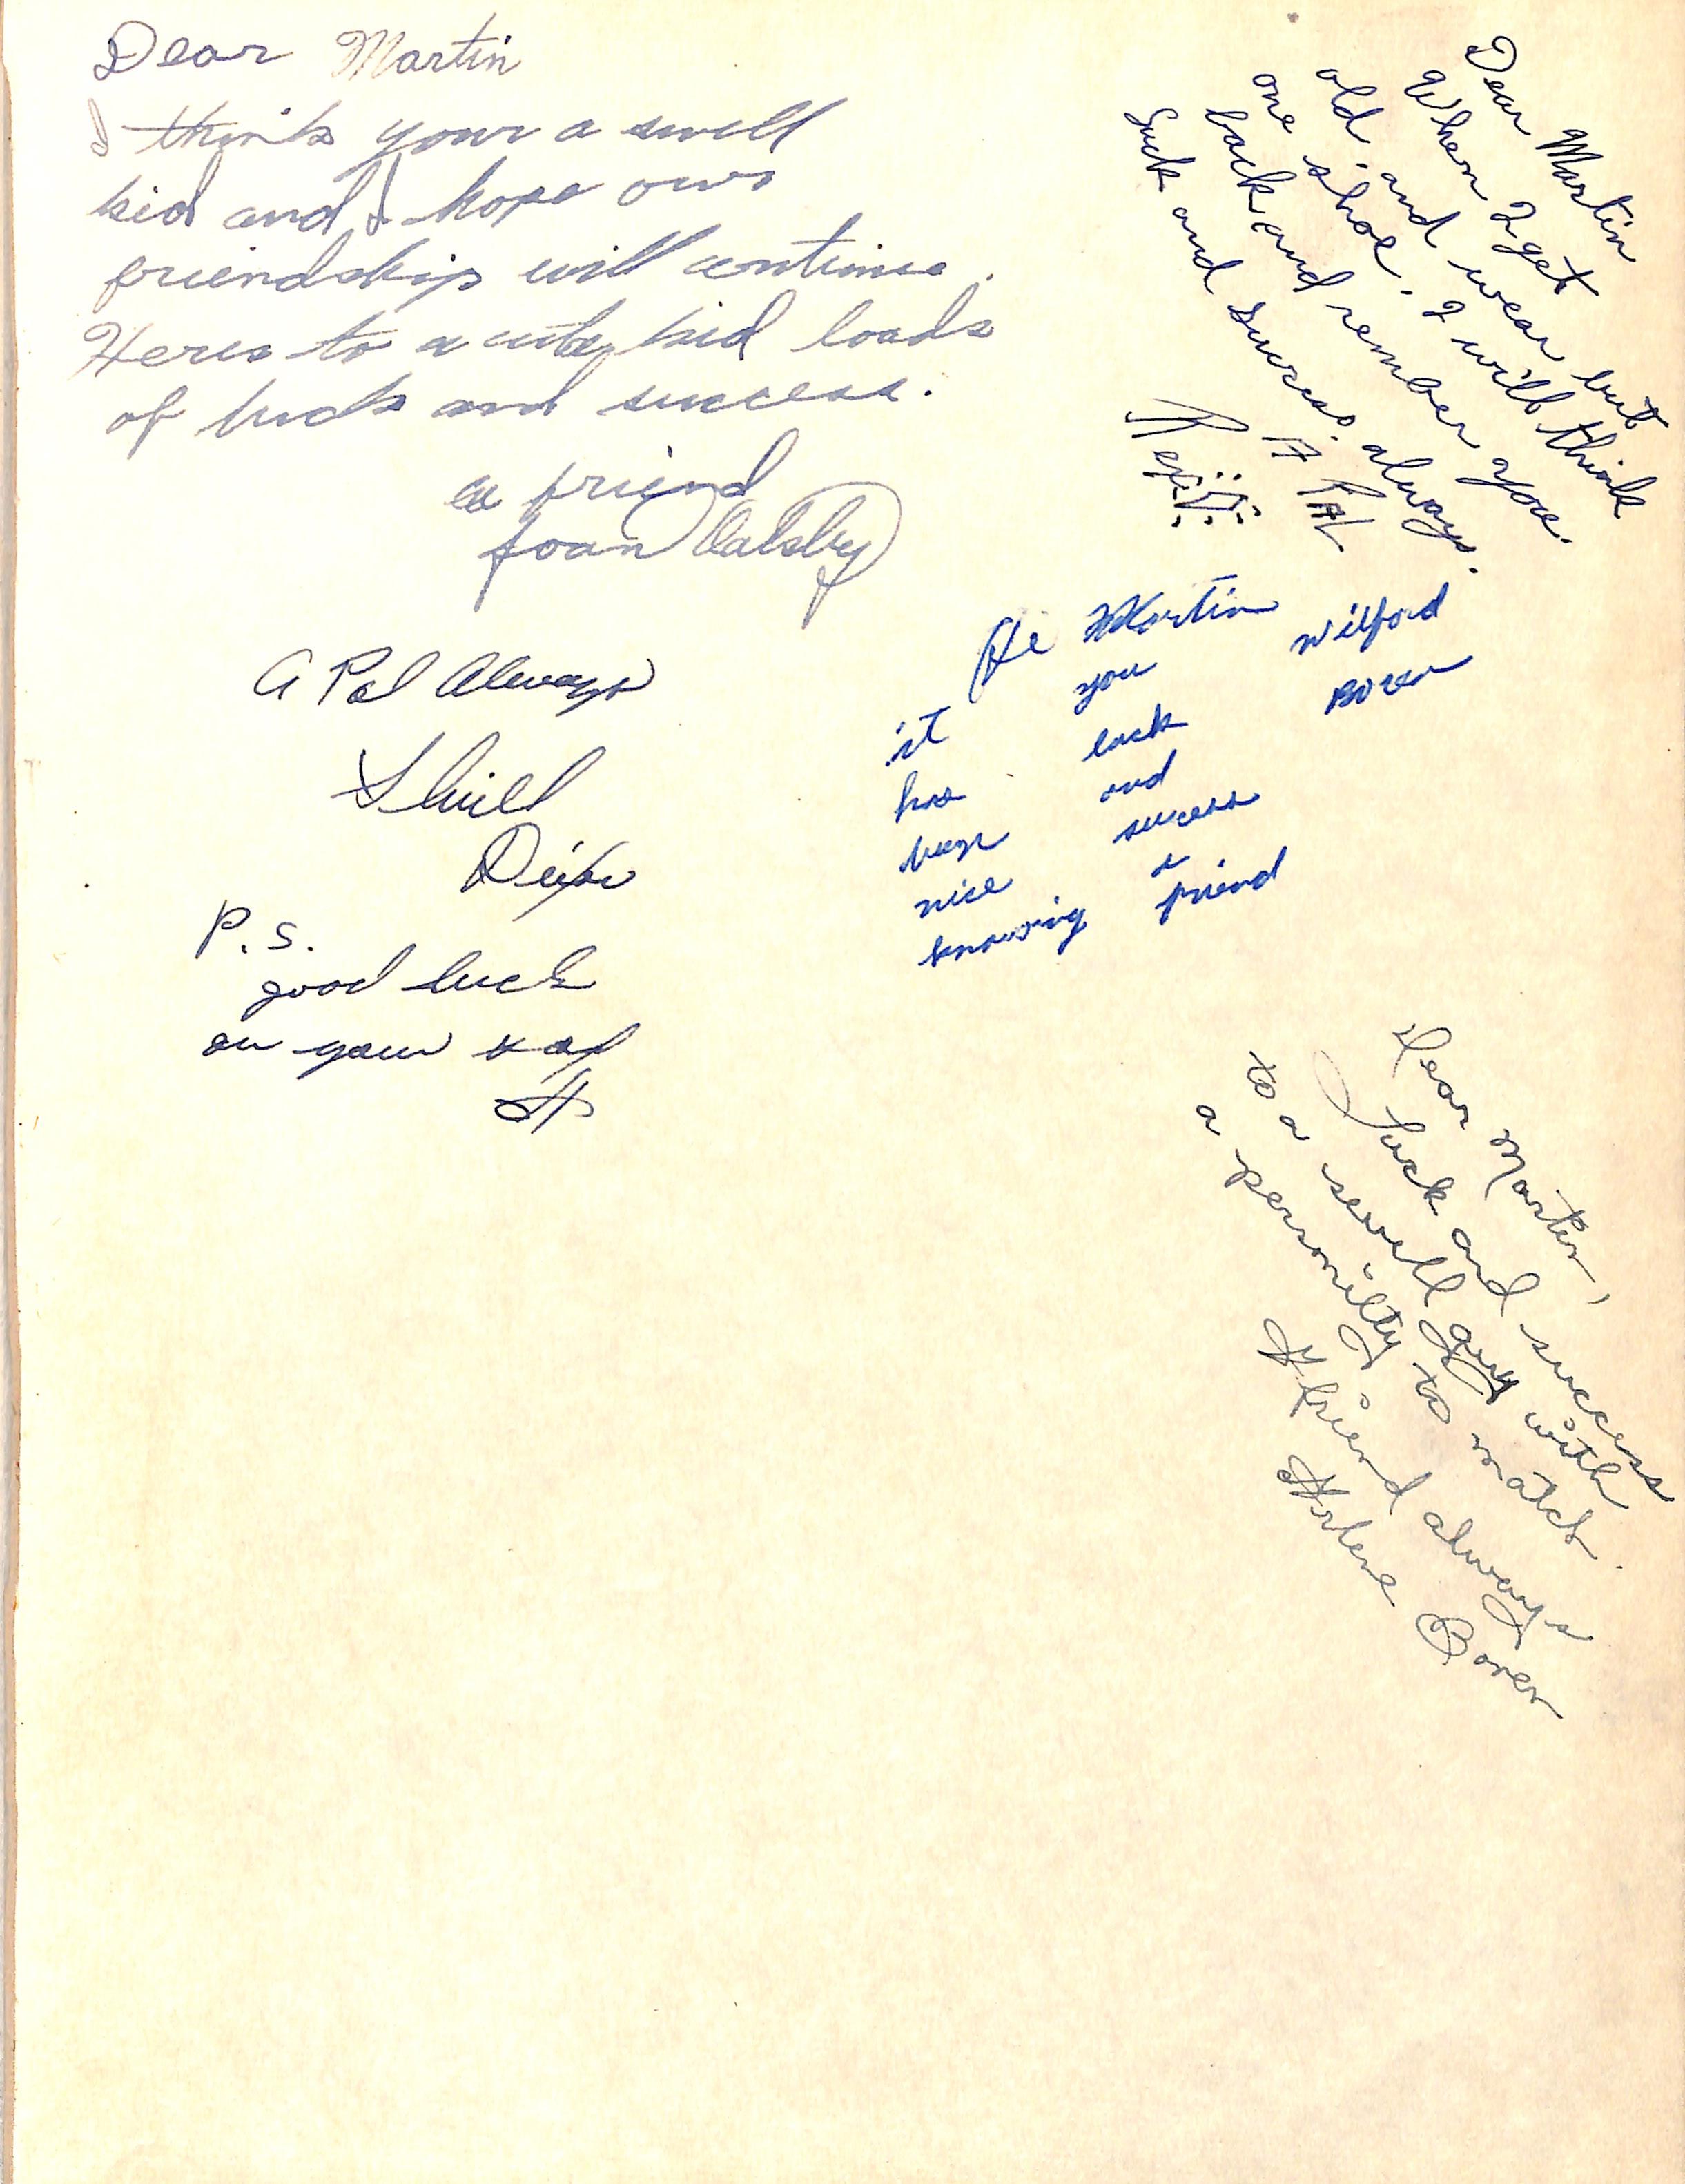 Dear Martin
I think your a swell
kid and I hope our
friendship will continue.
Heres to a cute kid loads
of luck and success.
a friend
Joan
Dear Martin
When I get
old and wear but
one shoe. I will think
back and remember you.
Luck and success always.
A PAL
A Pal Always
P.S.
good luck
on your
Martin
it
has
been
nice
knowing
you
luck
and
success
a
friend
Wilford
Boren
Dear Martin,
Luck and success
to a swell guy with
a personilty to match.
A friend always
Boren